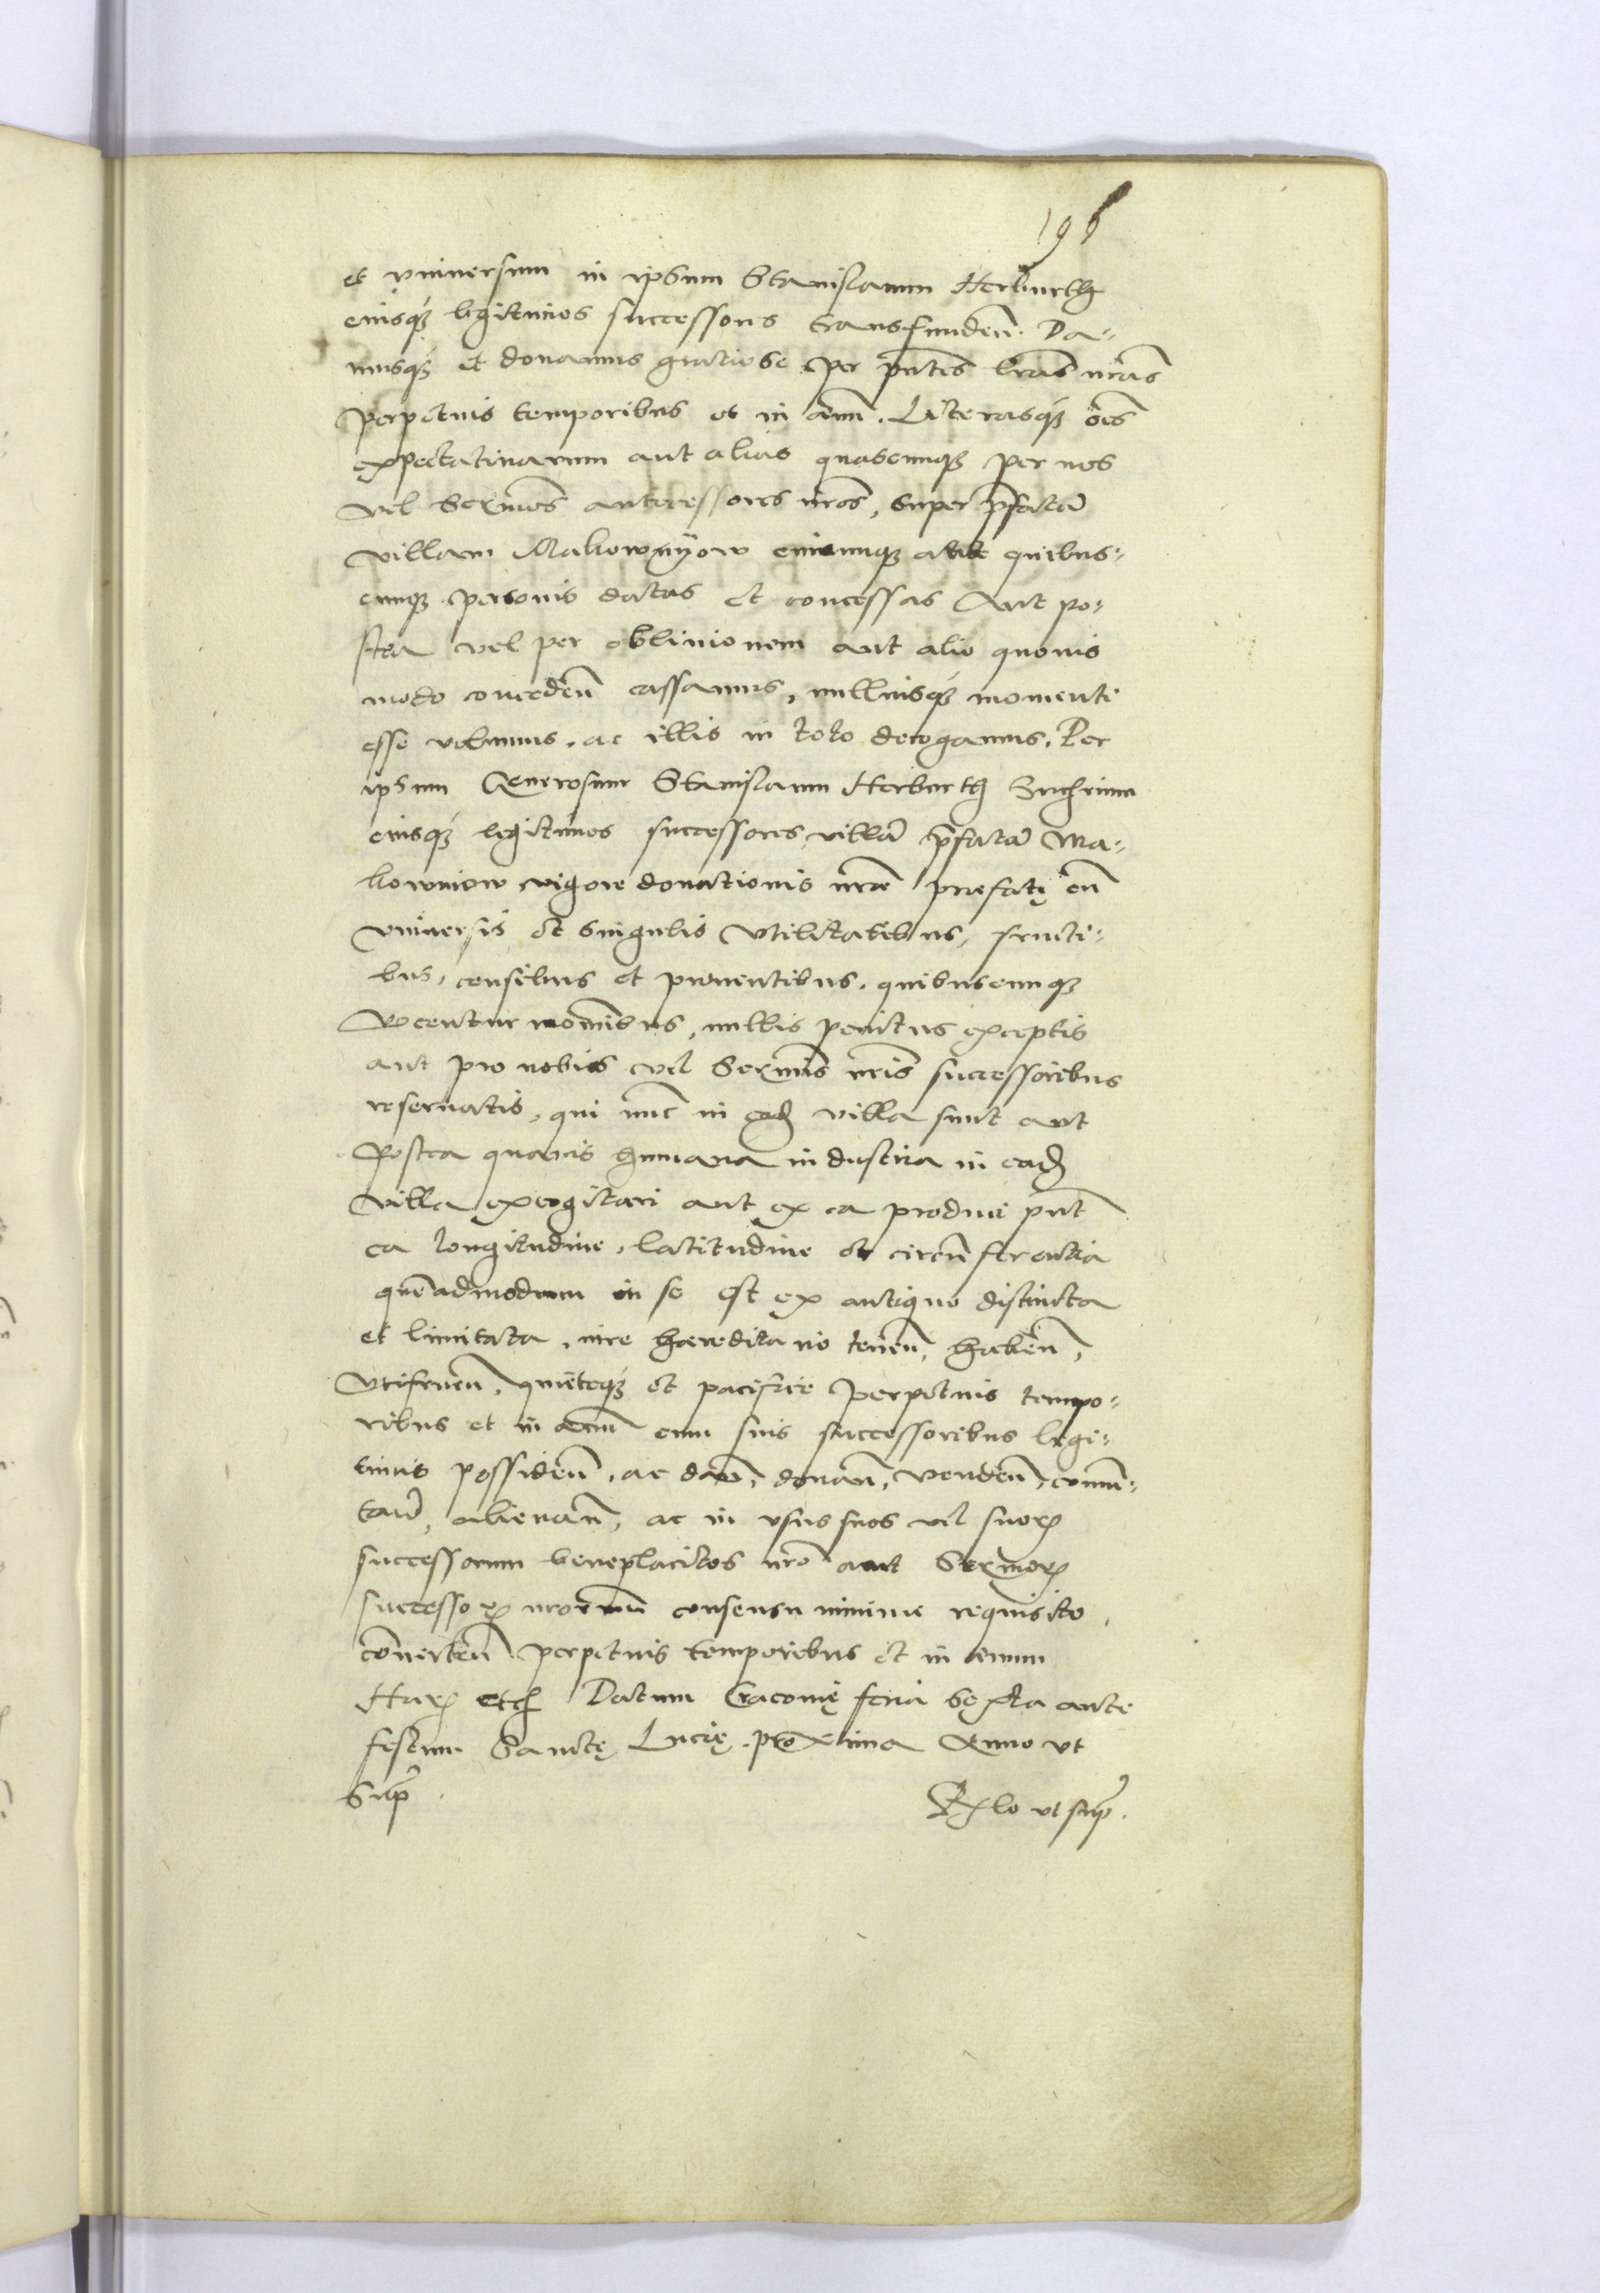 196
et vniuersum in ipsum Stanislaum Herburth
eiusq́ꝫ legitimos successores transfundeñ. Da-
musq́ꝫ et donamus gratiose per pn̄tes lr̄as nr̄as
perpetuis temporibus et in aeuū. Literasq́ꝫ oēs
expectatiuarum aut alias quascunqꝫ per nos
vel Serm̄os antecessores nr̄os, super p̄fatā
villam Makownyow cuicunqꝫ quibus-
cunqꝫ personis datas et concessas Aut po-
stea vel per obliuionem aut alio quouis
modo concedeñ cassamus, nulliusq́ꝫ momenti
esse volumus, ac illis in toto derogamus. Per
ipsum Generosum Stanislaum Herburth
eiusq́ꝫ legitimos successores villā p̄fatā Ma-
kowniow vigore donationis nr̄ae praefatę cū
vniuersis et singulis vtilitatibus, fructi-
bus, censibus et prouentibus, quibuscunqꝫ
vocentur nomībus, nullis penitus exceptis
aut pro nobis vel Serm̄is nr̄is successoribus
reseruatis, qui nūc in eadꝫ villa sunt aut
Postea quauis humana industria in eadꝫ
villa excogitari aut ex ea produci pn̄t
ea longitudine, latitudine et circūferentia
quēadmodum in se est ex antiquo distincta
et limitata, iure haereditario teneñ, habeñ,
Vtifrueñ, quieteq́ꝫ et pacifice perpetuis tempo-
ribus et in aeuū cum suis successoribus legi-
timis possideñ, ac dañ, donañ, vendeñ, comū-
tañ, alienañ, ac in vsus suos vel suorꝝ
successorum beneplacitos nr̄o aut Serm̄orꝝ
successorꝝ nr̄orum consensu minime requisito,
cōuerteñ perpetuis temporibus et in aeuum
Harꝝ etc̄ Datum Cracouię feria sexta ante
festum Sanctę Lucię proxima Anno vt
sup̄.
Relō vt sup̄.